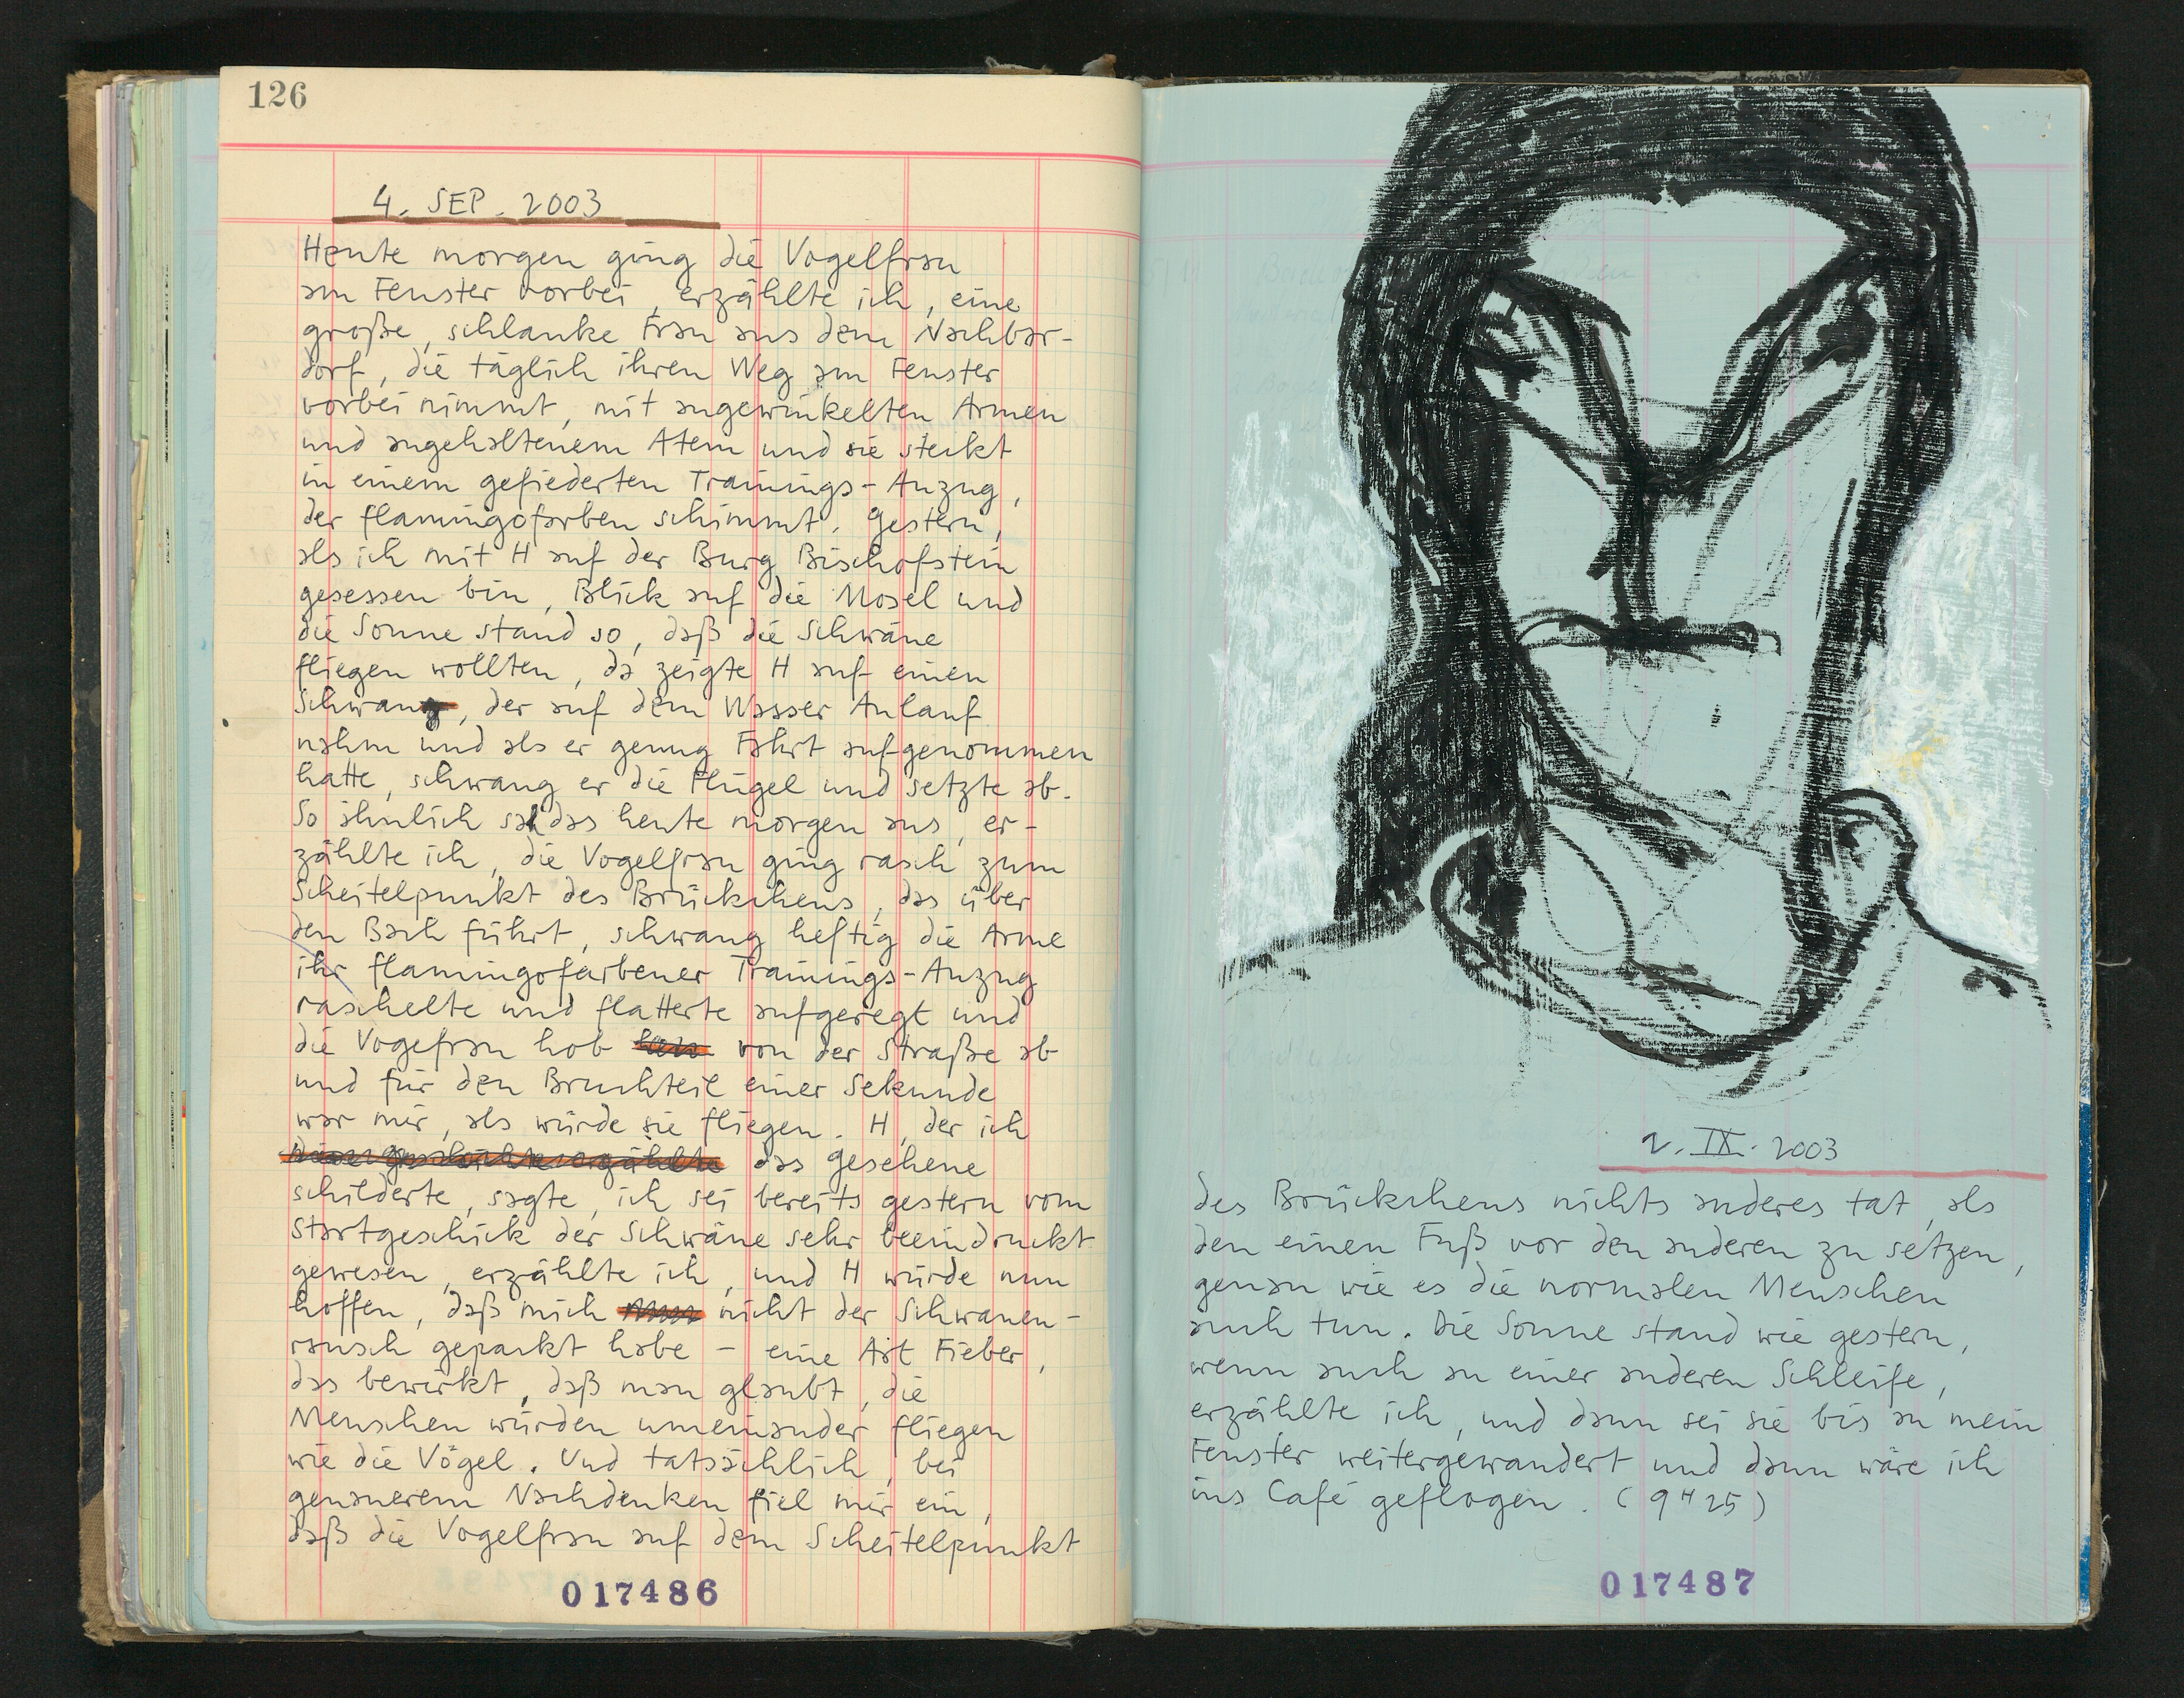 126
4. SEP. 2003
Heute morgen ging die Vogelfrau
am Fenster vorbei, erzählte ich, eine
große, schlanke Frau aus dem Nachbar-
dorf, die täglich ihren Weg am Fenster
vorbei nimmt, mit angewinkelten Armen
und angehaltenem Atem und sie steckt
in einem gefiederten Trainings-Anzug,
der flamingofarben schimmt. Gestern,
als ich mit H auf der Burg Bischofstein
gesessen bin, Blick auf die Mosel und
die Sonne stand so, daß die Schwäne
fliegen wollten, da zeigte H auf einen
Schwan, der auf dem Wasser Anlauf
nahm und als er genug Fahrt aufgenommen
hatte, schwang er die Flügel und setzte ab.
So ähnlich sah das heute morgen aus, er-
zählte ich, die Vogelfrau ging rasch zum
Scheitelpunkt des Brückchens, das über
den Bach führt, schwang heftig die Arme
ihr flamingofarbener Trainings-Anzug
raschelte und flatterte aufgeregt und
die Vogefrau hob von der Straße ab
und für den Bruchteil einer Sekunde
war mir, als würde sie fliegen. H, der ich
das gesehene
schilderte, sagte, ich sei bereits gestern vom
Startgeschick der Schwäne sehr beeindruckt
gewesen, erzählte ich, und H würde nun
hoffen, daß mich nicht der Schwanen-
rausch gepackt habe – eine Art Fieber,
das bewirkt, daß man glaubt, die
Menschen würden umeinander fliegen
wie die Vögel. Und tatsächlich, bei
genauerem Nachdenken fiel mir ein,
daß die Vogelfrau auf dem Scheitelpunkt
017486
2. IX. 2003
des Brückchens nichts anderes tat, als
den einen Fuß vor den anderen zu setzen,
genau wie es die normalen Menschen
auch tun. Die Sonne stand wie gestern,
wenn auch an einer anderen Schleife,
erzählte ich, und dann sei sie bis an mein
Fenster weitergewandert und dann wäre ich
ins Café geflogen. (9 H 25)
017487